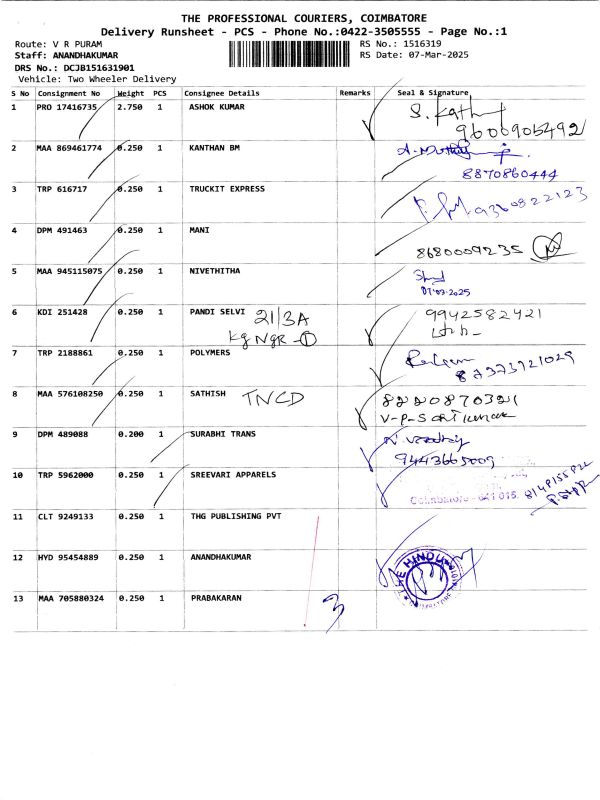 THE PROFESSIONAL COURIERS, COIMBATORE
Delivery Runsheet - PCS - Phone No.:0422-3505555 - Page No.:1
Route: V R PURAM
RS No.: 1516319
Staff: ANANDHAKUMAR
RS Date: 07-Mar-2025
DRS No.: DCJB151631901
Vehicle: Two Wheeler Delivery
S No Consignment No Weight PCS Consignee Details Remarks Seal & Signature
1 PRO 17416735 2.750 1 ASHOK KUMAR
9600905492
2 MAA 869461774 0.250 1 KANTHAN BM
8870860444
3 TRP 616717 0.250 1 TRUCKIT EXPRESS
9360822123
4 DPM 491463 0.250 1 MANI
8680009235
5 MAA 945115075 0.250 1 NIVETHITHA
07.03.2025
6 KDI 251428 0.250 1 PANDI SELVI 21/3A 9942582421
Kg NGR -①
7 TRP 2188861 0.250 1 POLYMERS
8 MAA 576108250 0.250 1 SATHISH TNCD 8220870321
9 DPM 489088 0.200 1 SURABHI TRANS
9443665009
10 TRP 5962000 0.250 1 SREEVARI APPARELS
Coimbatore - 641 015.
11 CLT 9249133 0.250 1 THG PUBLISHING PVT
12 HYD 95454889 0.250 1 ANANDHAKUMAR THE HINDU
13 MAA 705880324 0.250 1 PRABAKARAN 3